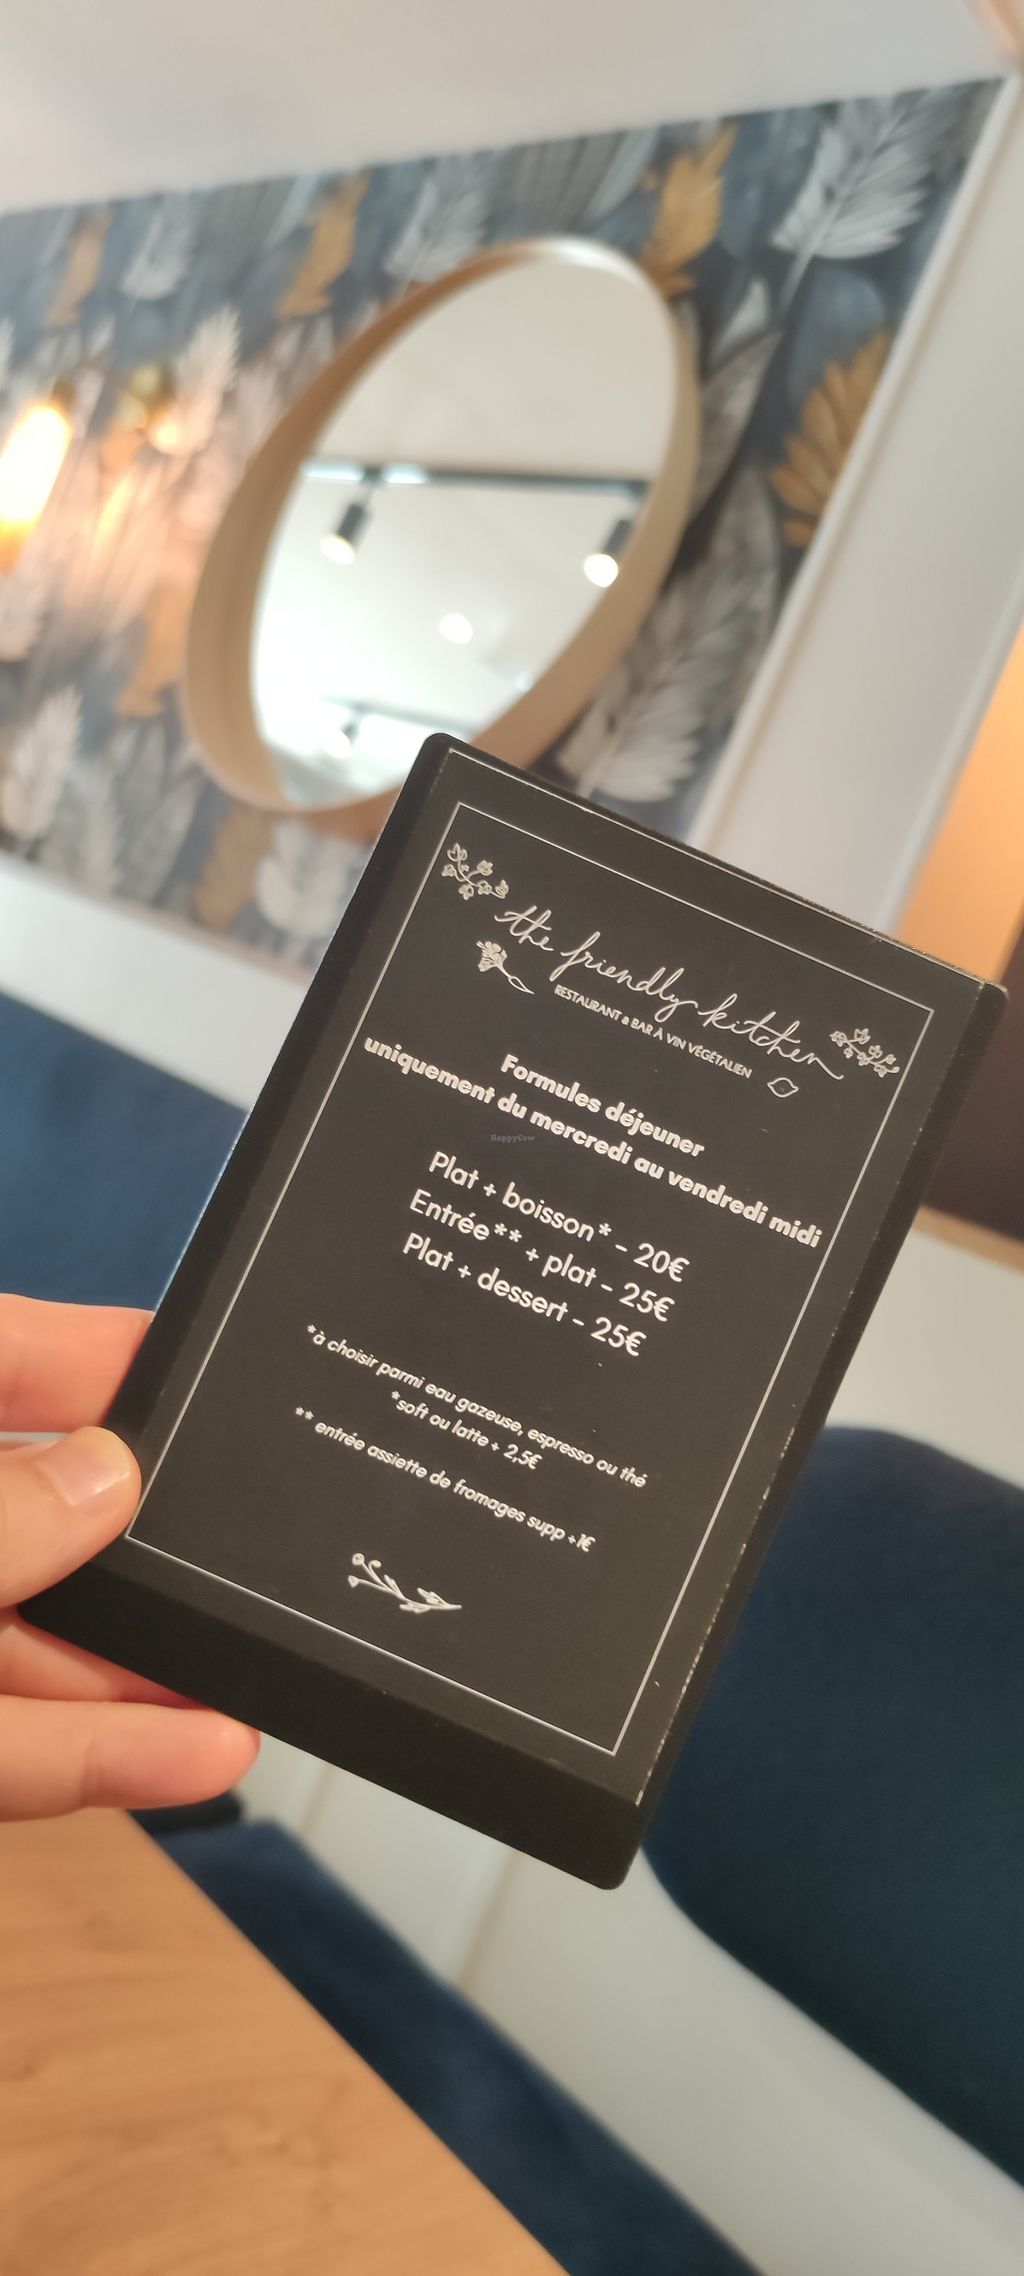 the friendly kitchen
RESTAURANT & BAR À VIN VÉGÉTALIEN
Formules déjeuner
uniquement du mercredi au vendredi midi
HappyCow
Plat + boisson* - 20€
Entrée** + plat - 25€
Plat + dessert - 25€
*à choisir parmi eau gazeuse, espresso ou thé
*soft ou latte + 2,5€
** entrée assiette de fromages supp +1€